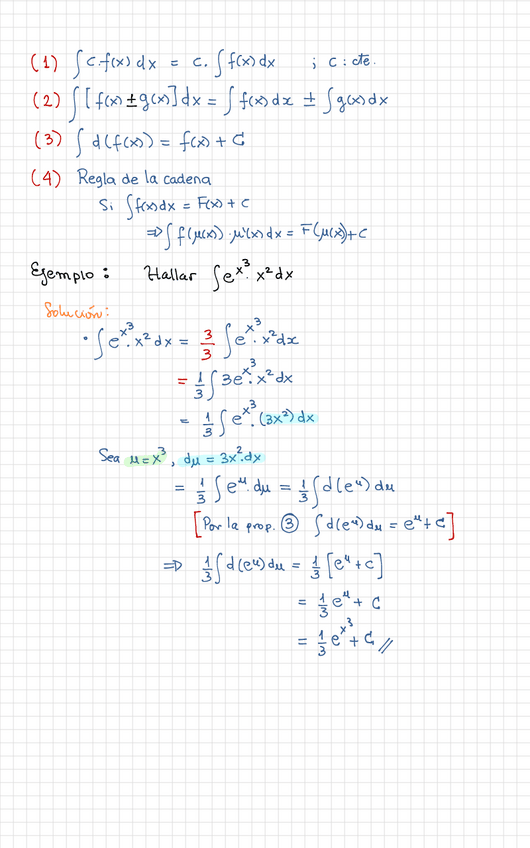 (1) ∫ c·f(x) dx = c. ∫ f(x) dx ; c : cte.
(2) ∫ [f(x) ± g(x)] dx = ∫ f(x) dx ± ∫ g(x) dx
(3) ∫ d(f(x)) = f(x) + C
(4) Regla de la cadena
Si ∫ f(x) dx = F(x) + c
⇒ ∫ f(μ(x)) · μ'(x) dx = F(μ(x)) + c
Ejemplo : Hallar ∫ e^x³ . x² dx
Solución:
• ∫ e^x³ . x² dx = 3/3 ∫ e^x³ . x² dx
= 1/3 ∫ 3e^x³ . x² dx
= 1/3 ∫ e^x³ . (3x²) dx
Sea μ = x³ , dμ = 3x².dx
= 1/3 ∫ e^μ . dμ = 1/3 ∫ d(e^μ) dμ
[Por la prop. ③ ∫ d(e^μ) dμ = e^μ + C]
⇒ 1/3 ∫ d(e^μ) dμ = 1/3 [e^μ + c]
= 1/3 e^μ + C
= 1/3 e^x³ + C //